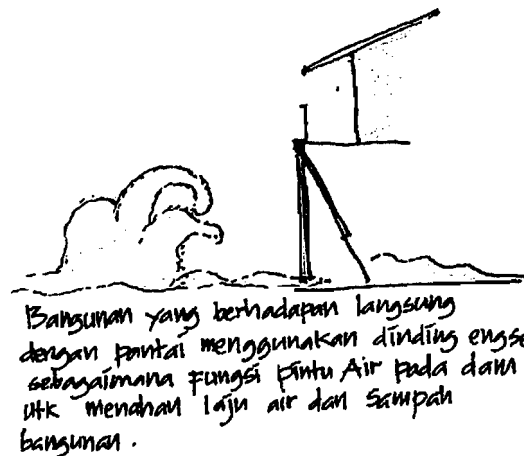 Bangunan yang berhadapan langsung
dengan pantai menggunakan dinding engse
sebagaimana Fungsi pintu Air pada dam
utk menahan laju air dan sampah
bangunan.